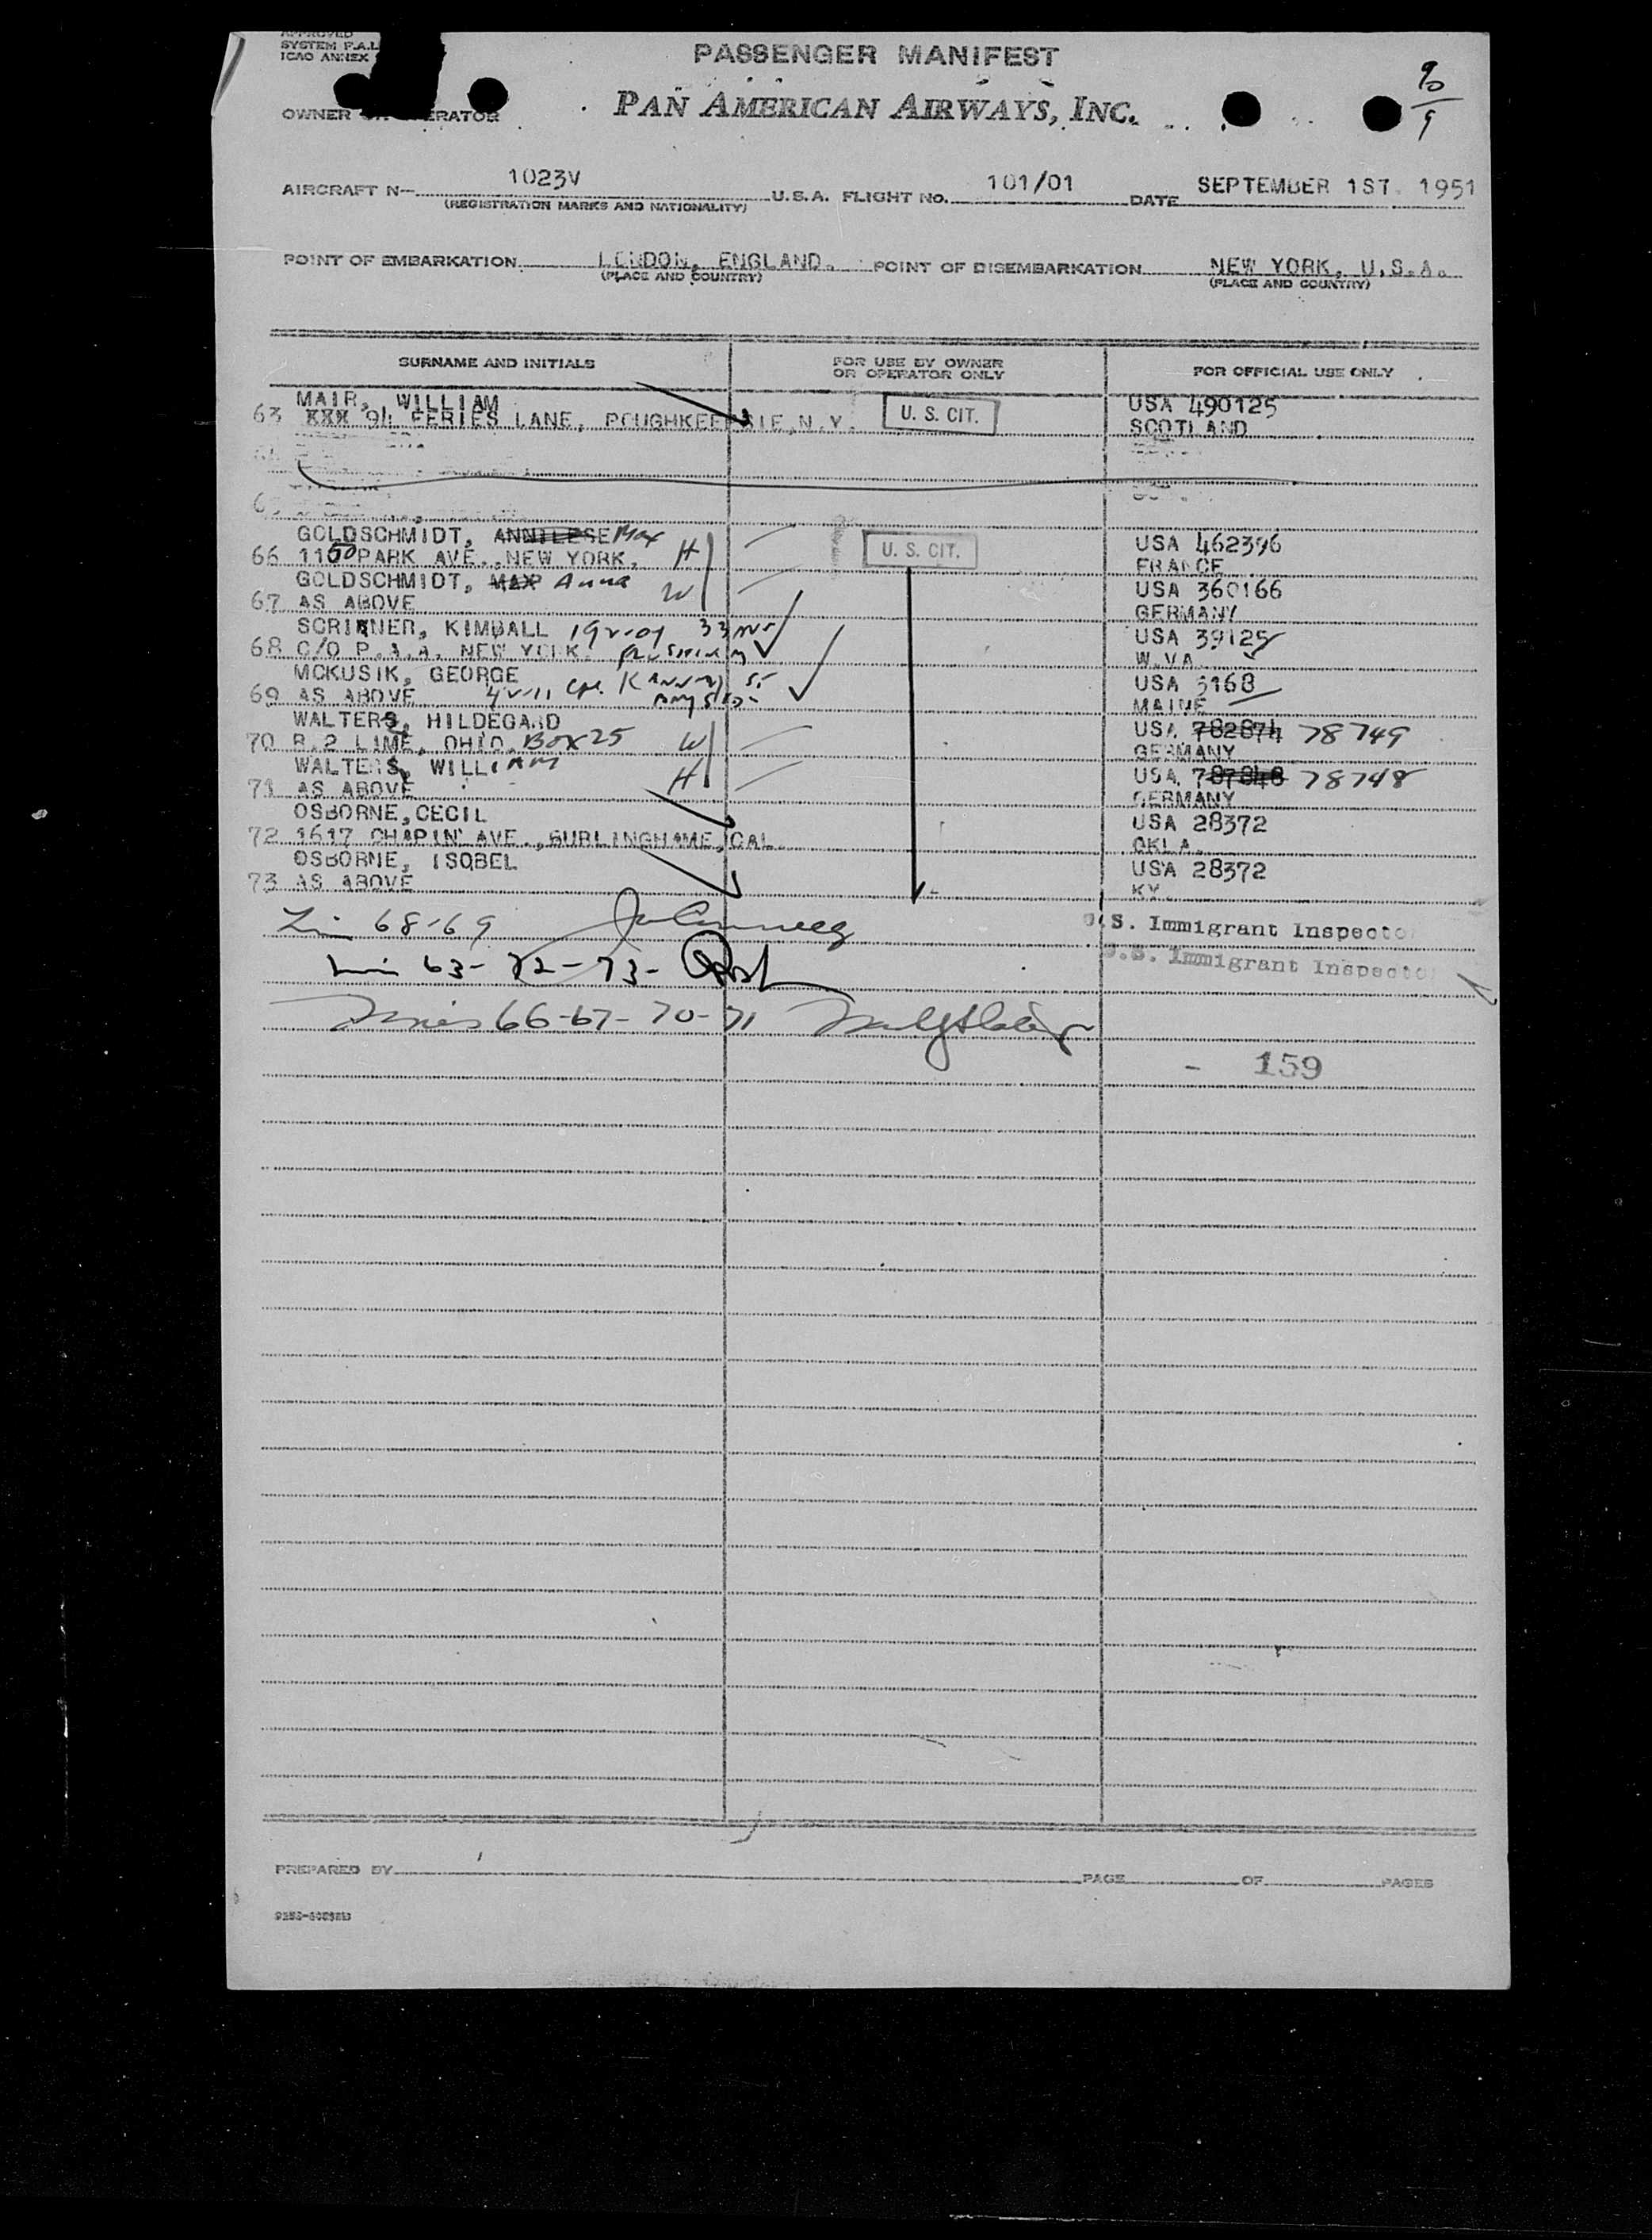 APPROVED
SYSTEM P.A.
ICAO ANNEX
PASSENGER MANIFEST
9
OWNER OPERATOR
PAN AMERICAN AIRWAYS, INC.
AIRCRAFT N— 1023V U.S.A. FLIGHT NO. 101/01 DATE SEPTEMBER 1ST. 1951
(REGISTRATION MARKS AND NATIONALITY)
POINT OF EMBARKATION LONDON, ENGLAND. POINT OF DISEMBARKATION NEW YORK, U.S.A.
(PLACE AND COUNTRY) (PLACE AND COUNTRY)
SURNAME AND INITIALS FOR USE BY OWNER OR OPERATOR ONLY FOR OFFICIAL USE ONLY
MAIR, WILLIAM USA 490125
63 XXX 94 FERIES LANE, POUGHKEEPSIE, N.Y. U. S. CIT. SCOTLAND
GOLDSCHMIDT, Max USA 462396
66 1150 PARK AVE., NEW YORK. H U. S. CIT. FRANCE
GOLDSCHMIDT, MAX Anna W USA 360166
67 AS ABOVE GERMANY
SCRIBNER, KIMBALL USA 39125
68 C/O P.A.A. NEW YORK. W.VA.
MCKUSIK, GEORGE USA 5168
69 AS ABOVE MAINE
WALTERS, HILDEGARD USA 782874 78749
70 R.2 LIME, OHIO. BOX 25 W GERMANY
WALTERS, WILLIAM USA 787848 78748
71 AS ABOVE H GERMANY
OSBORNE, CECIL USA 28372
72 1617 CHAPIN AVE., BURLINGHAME, CAL. OKLA.
OSBORNE, ISOBEL USA 28372
73 AS ABOVE KY.
68-69 U.S. Immigrant Inspecto
63-72-73- U.S. Immigrant Inspecto
Lines 66-67-70-71
- 159
PREPARED BY PAGE OF PAGES